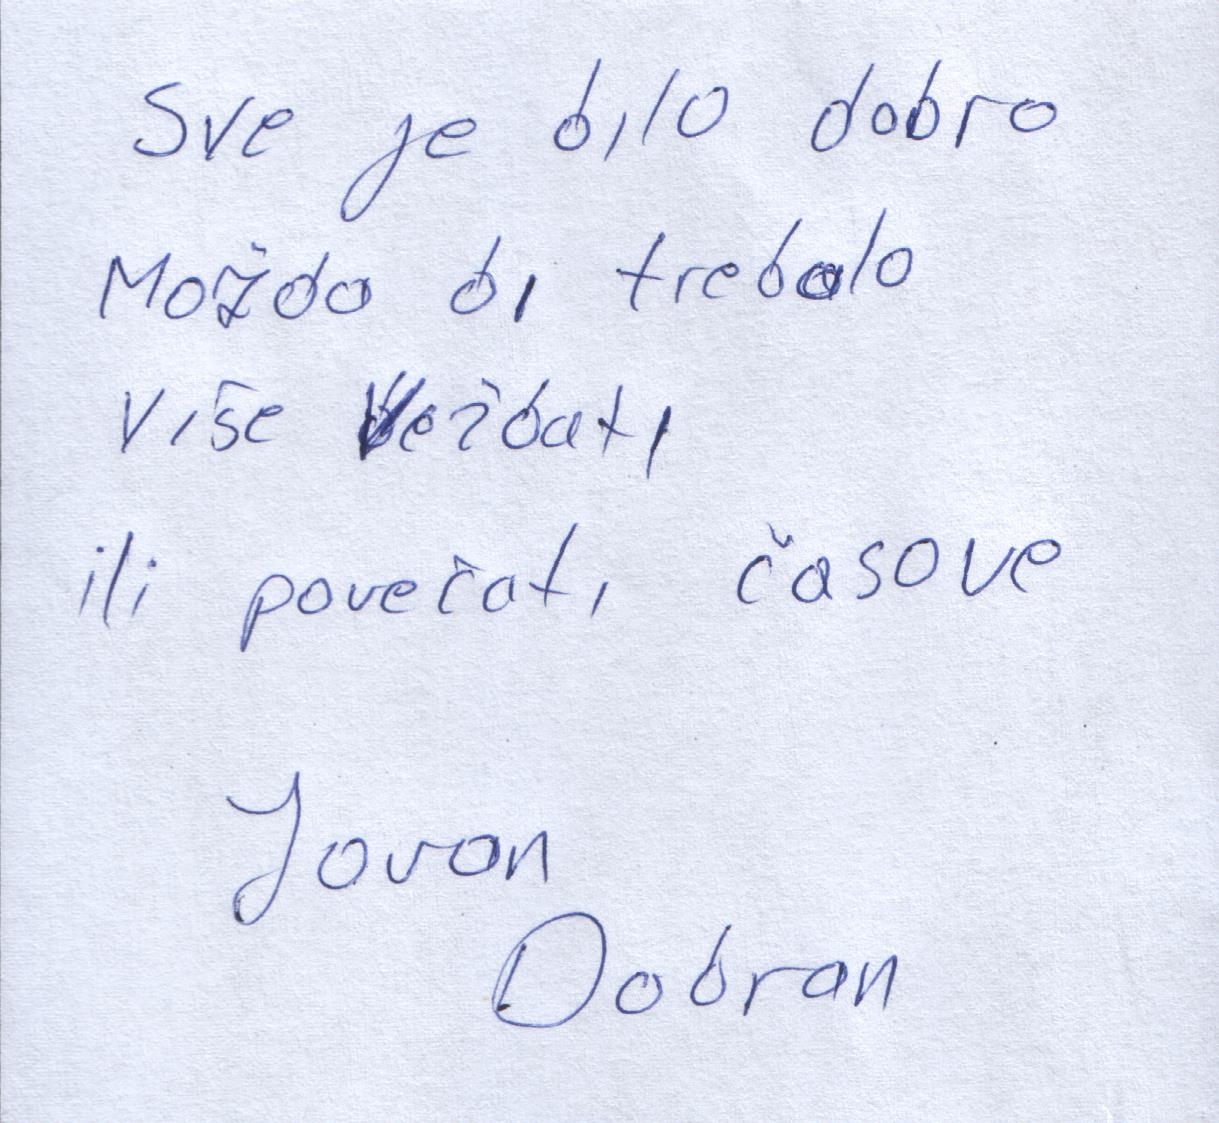 Sve je bilo dobro
Možda bi trebalo
više vežbati
ili povećati časove
Jovan
Dobran